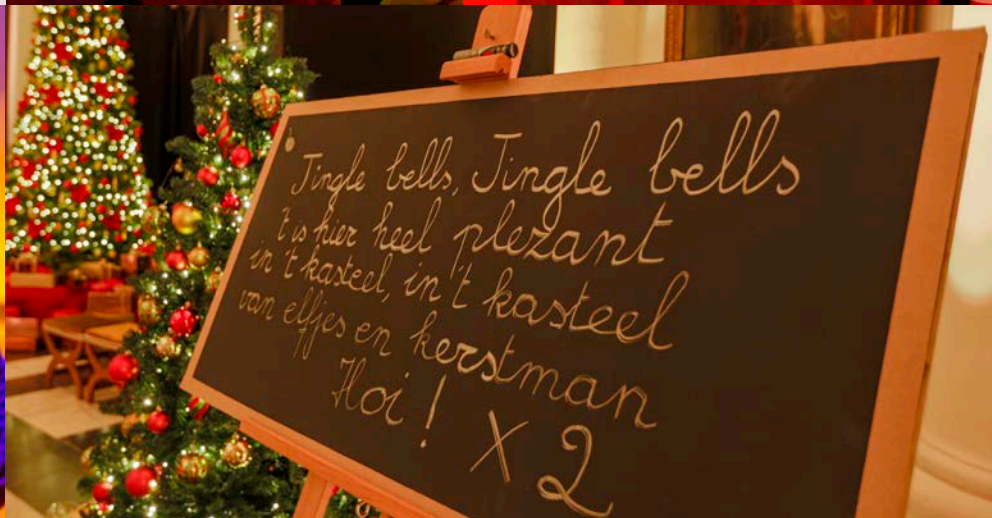 Jingle bells, Jingle bells
't is hier heel plezant
in 't kasteel, in 't kasteel
van elfjes en kerstman
Hoi! X2